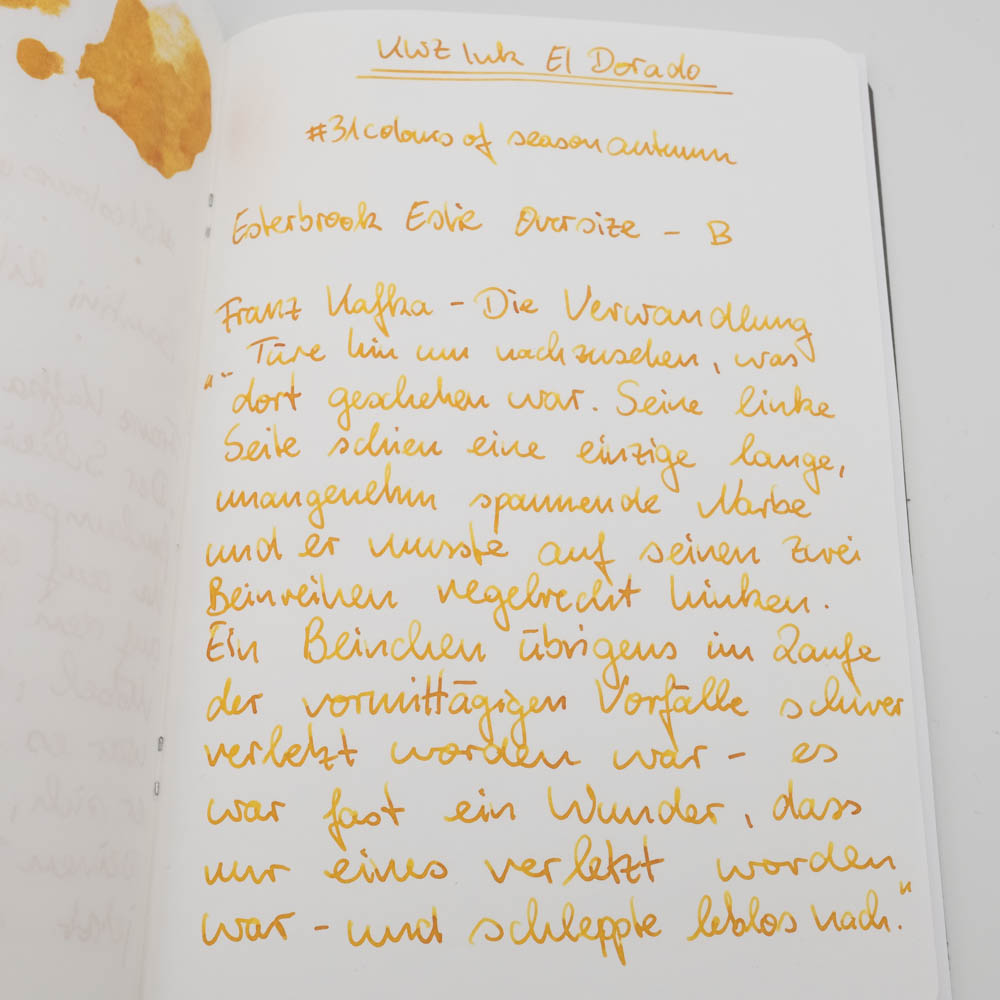 KWZ Ink El Dorado
#31coloursofseasonautumn
Esterbrook Estie Oversize - B
Franz Kafka - Die Verwandlung
"- Türe hin um nachzusehen, was
dort geschehen war. Seine linke
Seite schien eine einzige lange,
unangenehm spannende Narbe
und er musste auf seinen zwei
Beinreihen regelrecht hinken.
Ein Beinchen übrigens im Laufe
der vormittägigen Vorfälle schwer
verletzt worden war - es
war fast ein Wunder, dass
nur eines verletzt worden
war - und schleppte leblos nach."